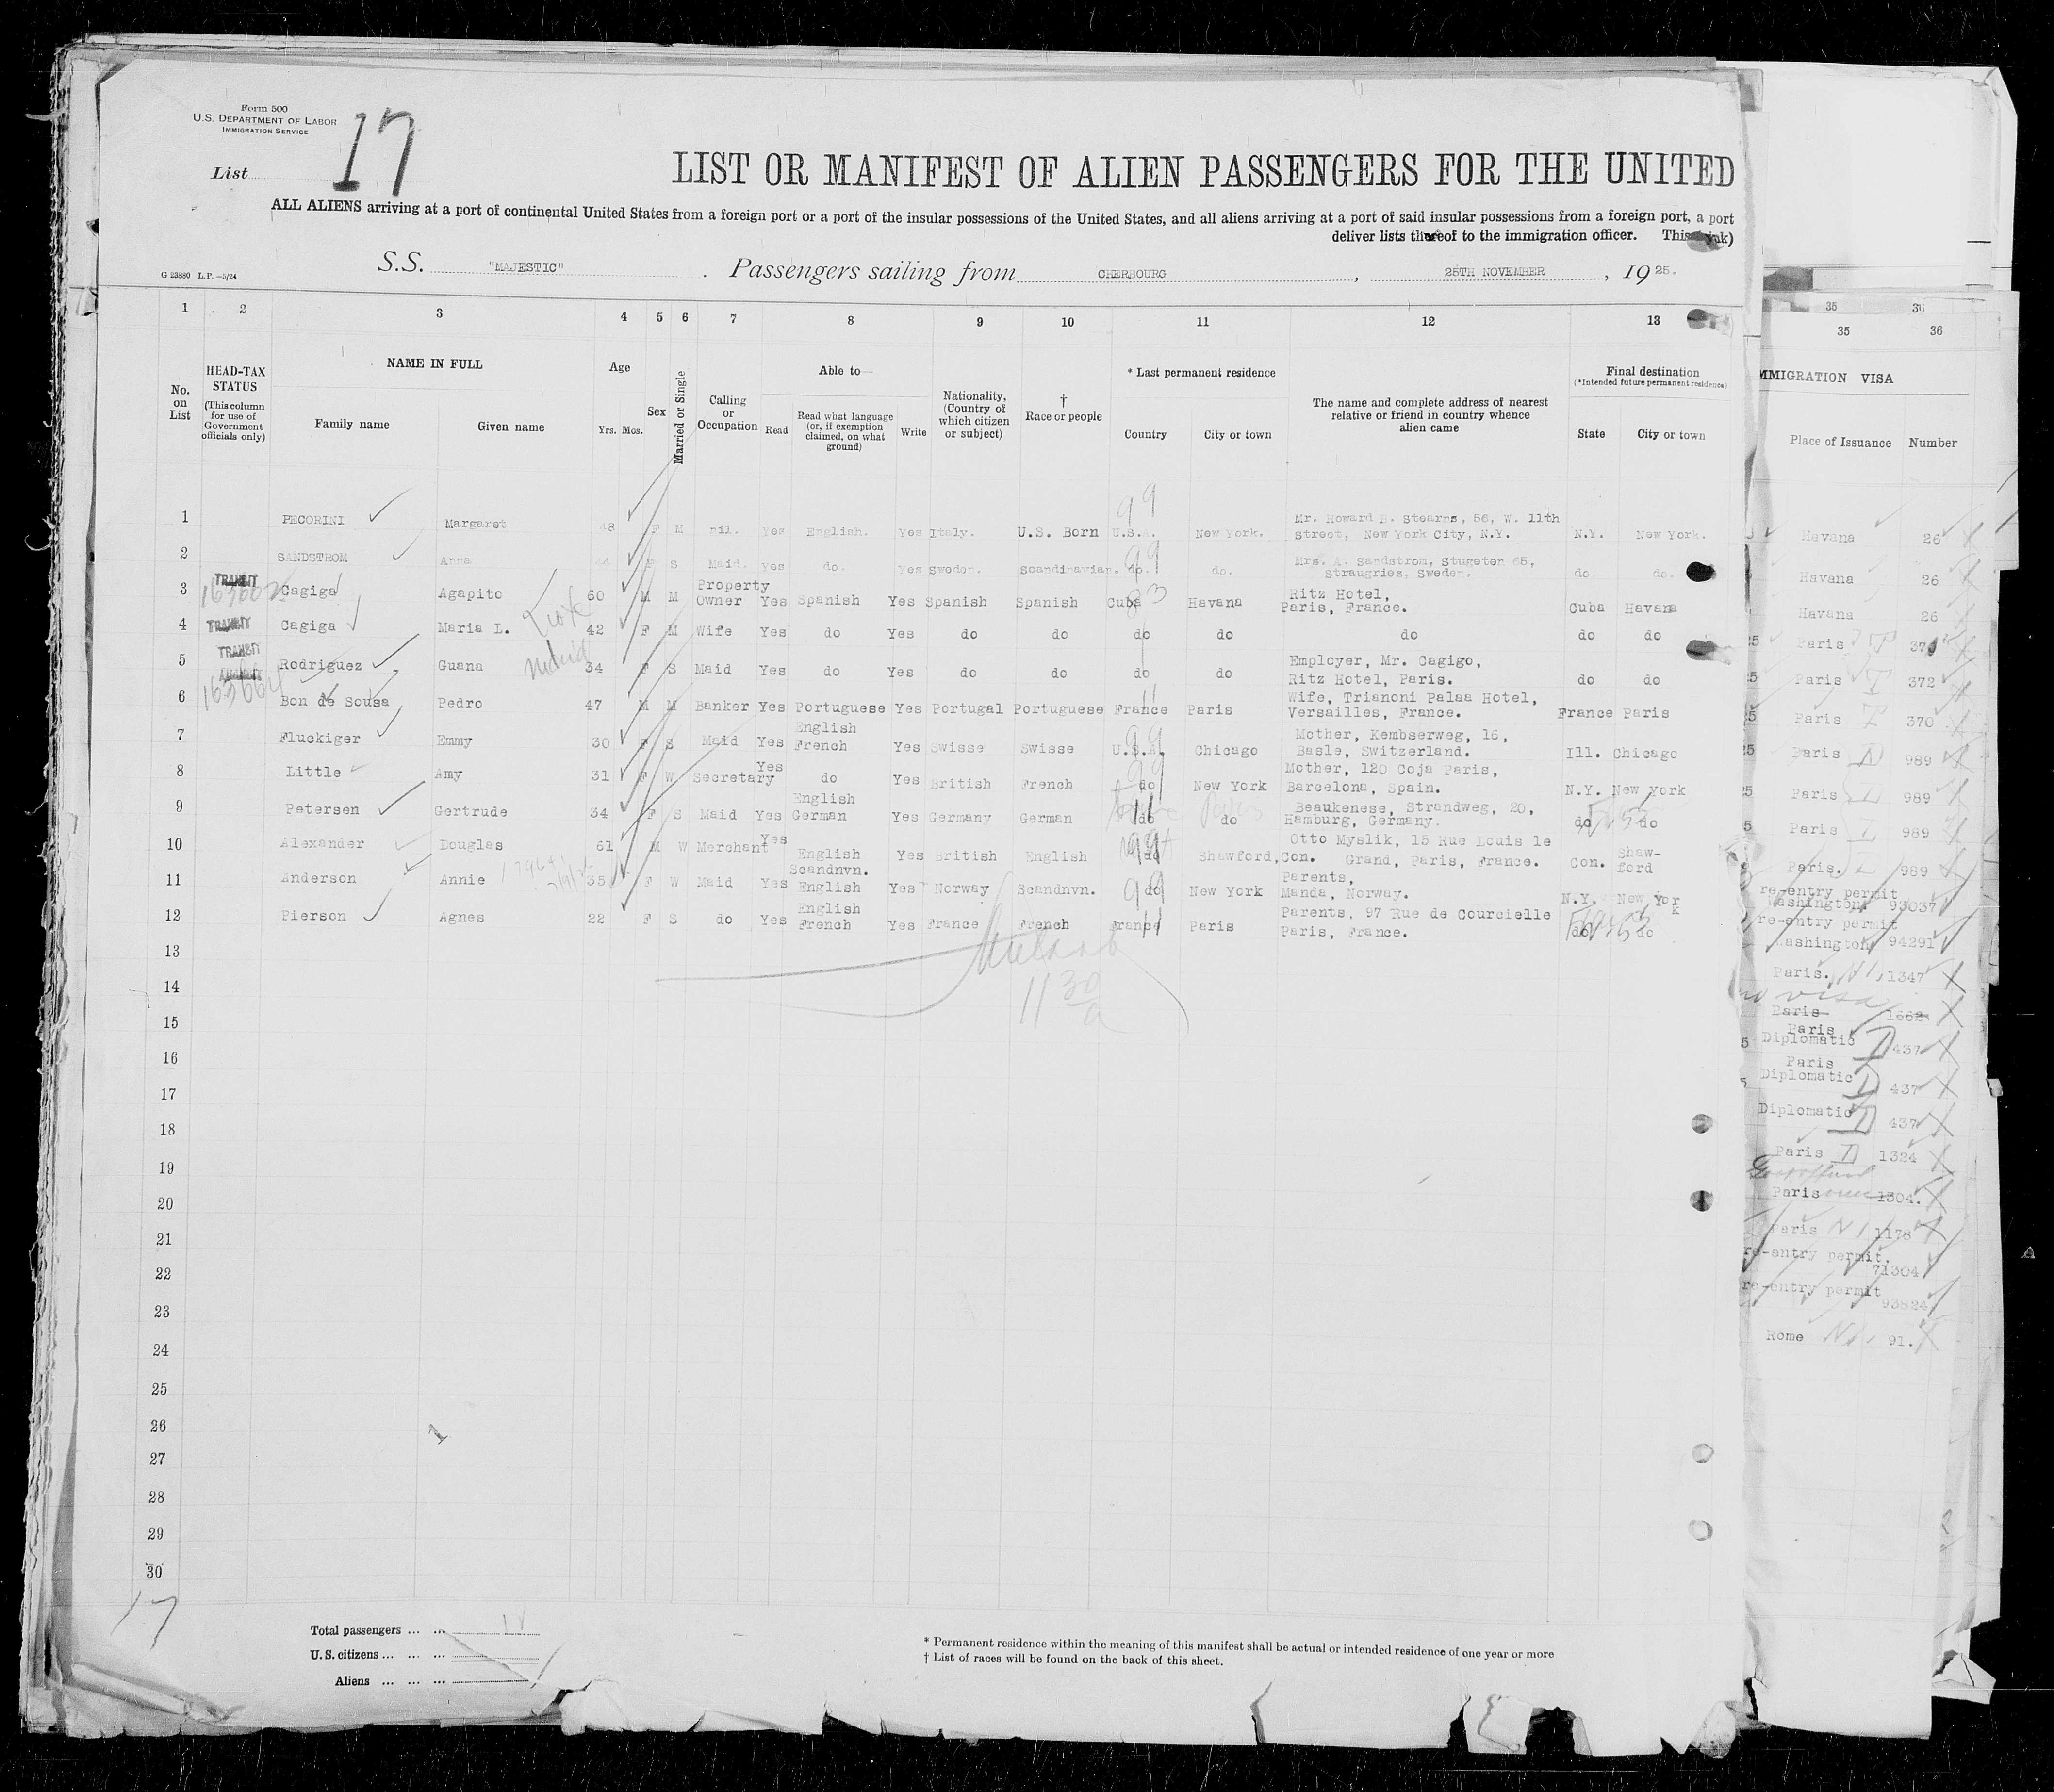 Form 500
U.S. DEPARTMENT OF LABOR
IMMIGRATION SERVICE
List 17
LIST OR MANIFEST OF ALIEN PASSENGERS FOR THE UNITED
ALL ALIENS arriving at a port of continental United States from a foreign port or a port of the insular possessions of the United States, and all aliens arriving at a port of said insular possessions from a foreign port, a port
deliver lists thereof to the immigration officer. This
G 23880 L.P.—5/24
S.S. "MAJESTIC" . Passengers sailing from CHERBOURG, 25TH NOVEMBER, 1925.
1 2 3 4 5 6 7 8 9 10 11 12 13
No. on List
HEAD-TAX STATUS (This column for use of Government officials only)
NAME IN FULL
Family name Given name
Age
Yrs. Mos.
Sex
Married or Single
Calling or Occupation
Able to—
Read
Read what language (or, if exemption claimed, on what ground)
Write
Nationality, (Country of which citizen or subject)
† Race or people
* Last permanent residence
Country City or town
The name and complete address of nearest relative or friend in country whence alien came
Final destination
(*Intended future permanent residence)
State City or town
1 PECORINI Margaret 48 F M nil. Yes English. Yes Italy. U.S. Born U.S.A. New York. Mr. Howard B. Stearns, 56, W. 11th street, New York City, N.Y. N.Y. New York.
99
2 SANDSTROM Anna 44 F S Maid. Yes do. Yes Sweden. Scandinavian. do. do. Mrs. A. Sandstrom, Stugeten 65, Straugries, Sweden. do. do.
99
3 TRANSIT Cagiga Agapito 60 M M Property Owner Yes Spanish Yes Spanish Spanish Cuba Havana Ritz Hotel, Paris, France. Cuba Havana
4 TRANSIT Cagiga Maria L. 42 F M Wife Yes do Yes do do do do do do do
5 TRANSIT Rodriguez Guana 34 F S Maid Yes do Yes do do do do Employer, Mr. Cagigo, Ritz Hotel, Paris. do do
6 Bon de Sousa Pedro 47 M M Banker Yes Portuguese Yes Portugal Portuguese France Paris Wife, Trianoni Palaa Hotel, Versailles, France. France Paris
11
7 Fluckiger Emmy 30 F S Maid Yes English French Yes Swisse Swisse U.S.A. Chicago Mother, Kembserweg, 16, Basle, Switzerland. Ill. Chicago
99
8 Little Amy 31 F W Secretary Yes do Yes British French do New York Mother, 120 Coja Paris, Barcelona, Spain. N.Y. New York
99
9 Petersen Gertrude 34 F S Maid Yes English German Yes Germany German do do Beaukenese, Strandweg, 20, Hamburg, Germany. do do
11
10 Alexander Douglas 61 M W Merchant Yes English Yes British English do Shawford, Con. Otto Myslik, 15 Rue Louis le Grand, Paris, France. Con. Shaw-ford
99
11 Anderson Annie 35 F W Maid Yes Scandnvn. English Yes Norway Scandnvn. do New York Parents, Manda, Norway. N.Y. New York
99
12 Pierson Agnes 22 F S do Yes English French Yes France French France Paris Parents, 97 Rue de Courcielle Paris, France. do do
11
11 30 a
13
14
15
16
17
18
19
20
21
22
23
24
25
26
27
28
29
30
17
Total passengers ... ...
U.S. citizens ... ... ...
Aliens ... ... ...
* Permanent residence within the meaning of this manifest shall be actual or intended residence of one year or more
† List of races will be found on the back of this sheet.
35 36
35 36
MMIGRATION VISA
Place of Issuance Number
Havana 26
Havana 26
Havana 26
Paris 371
Paris 372
Paris 370
Paris 989
Paris 989
Paris 989
Paris. 989
re-entry permit
Washington 93037
re-entry permit
Washington 94291
Paris. 1347
no visa
Paris 1662
Paris
Diplomatic 437
Paris
Diplomatic 437
Diplomatic 437
Paris 1324
Paris 1304.
Paris 1178
re-entry permit.
71304
re-entry permit
93824
Rome 91.